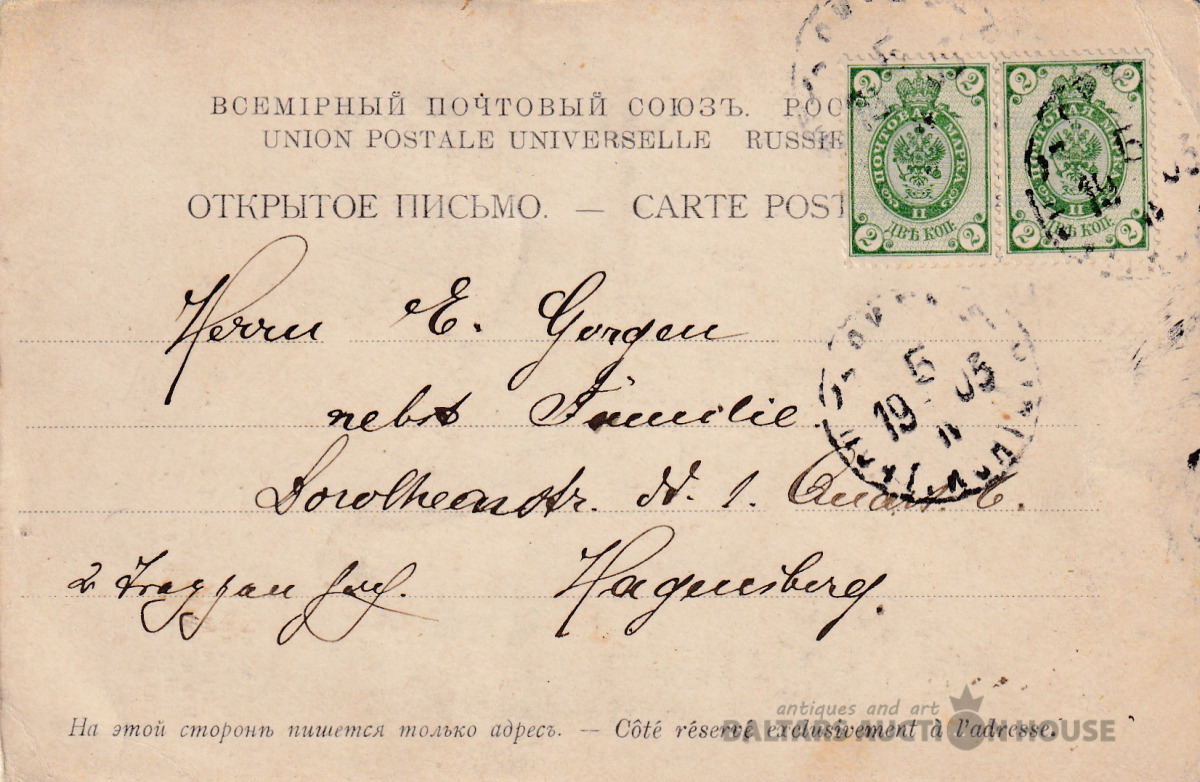 ВСЕМІРНЫЙ ПОЧТОВЫЙ СОЮЗЪ. РОС
UNION POSTALE UNIVERSELLE RUSSIE
ОТКРЫТОЕ ПИСЬМО. — CARTE POST
2 2 2 2
ПОЧТОВАЯ МАРКА ПОЧТОВАЯ МАРКА
II II
ДВѢ КОП. ДВѢ КОП.
2 2 2 2
Herrn E. Gorgen
nebst Familie
5
19 05
II
Dorotheenstr. N. 1. Quart. 6.
2 Treppen hoch.
Hagensberg.
На этой сторонѣ пишется только адресъ. — Côté réservé exclusivement à l'adresse.
antiques and art
BALTARS AUCTION HOUSE